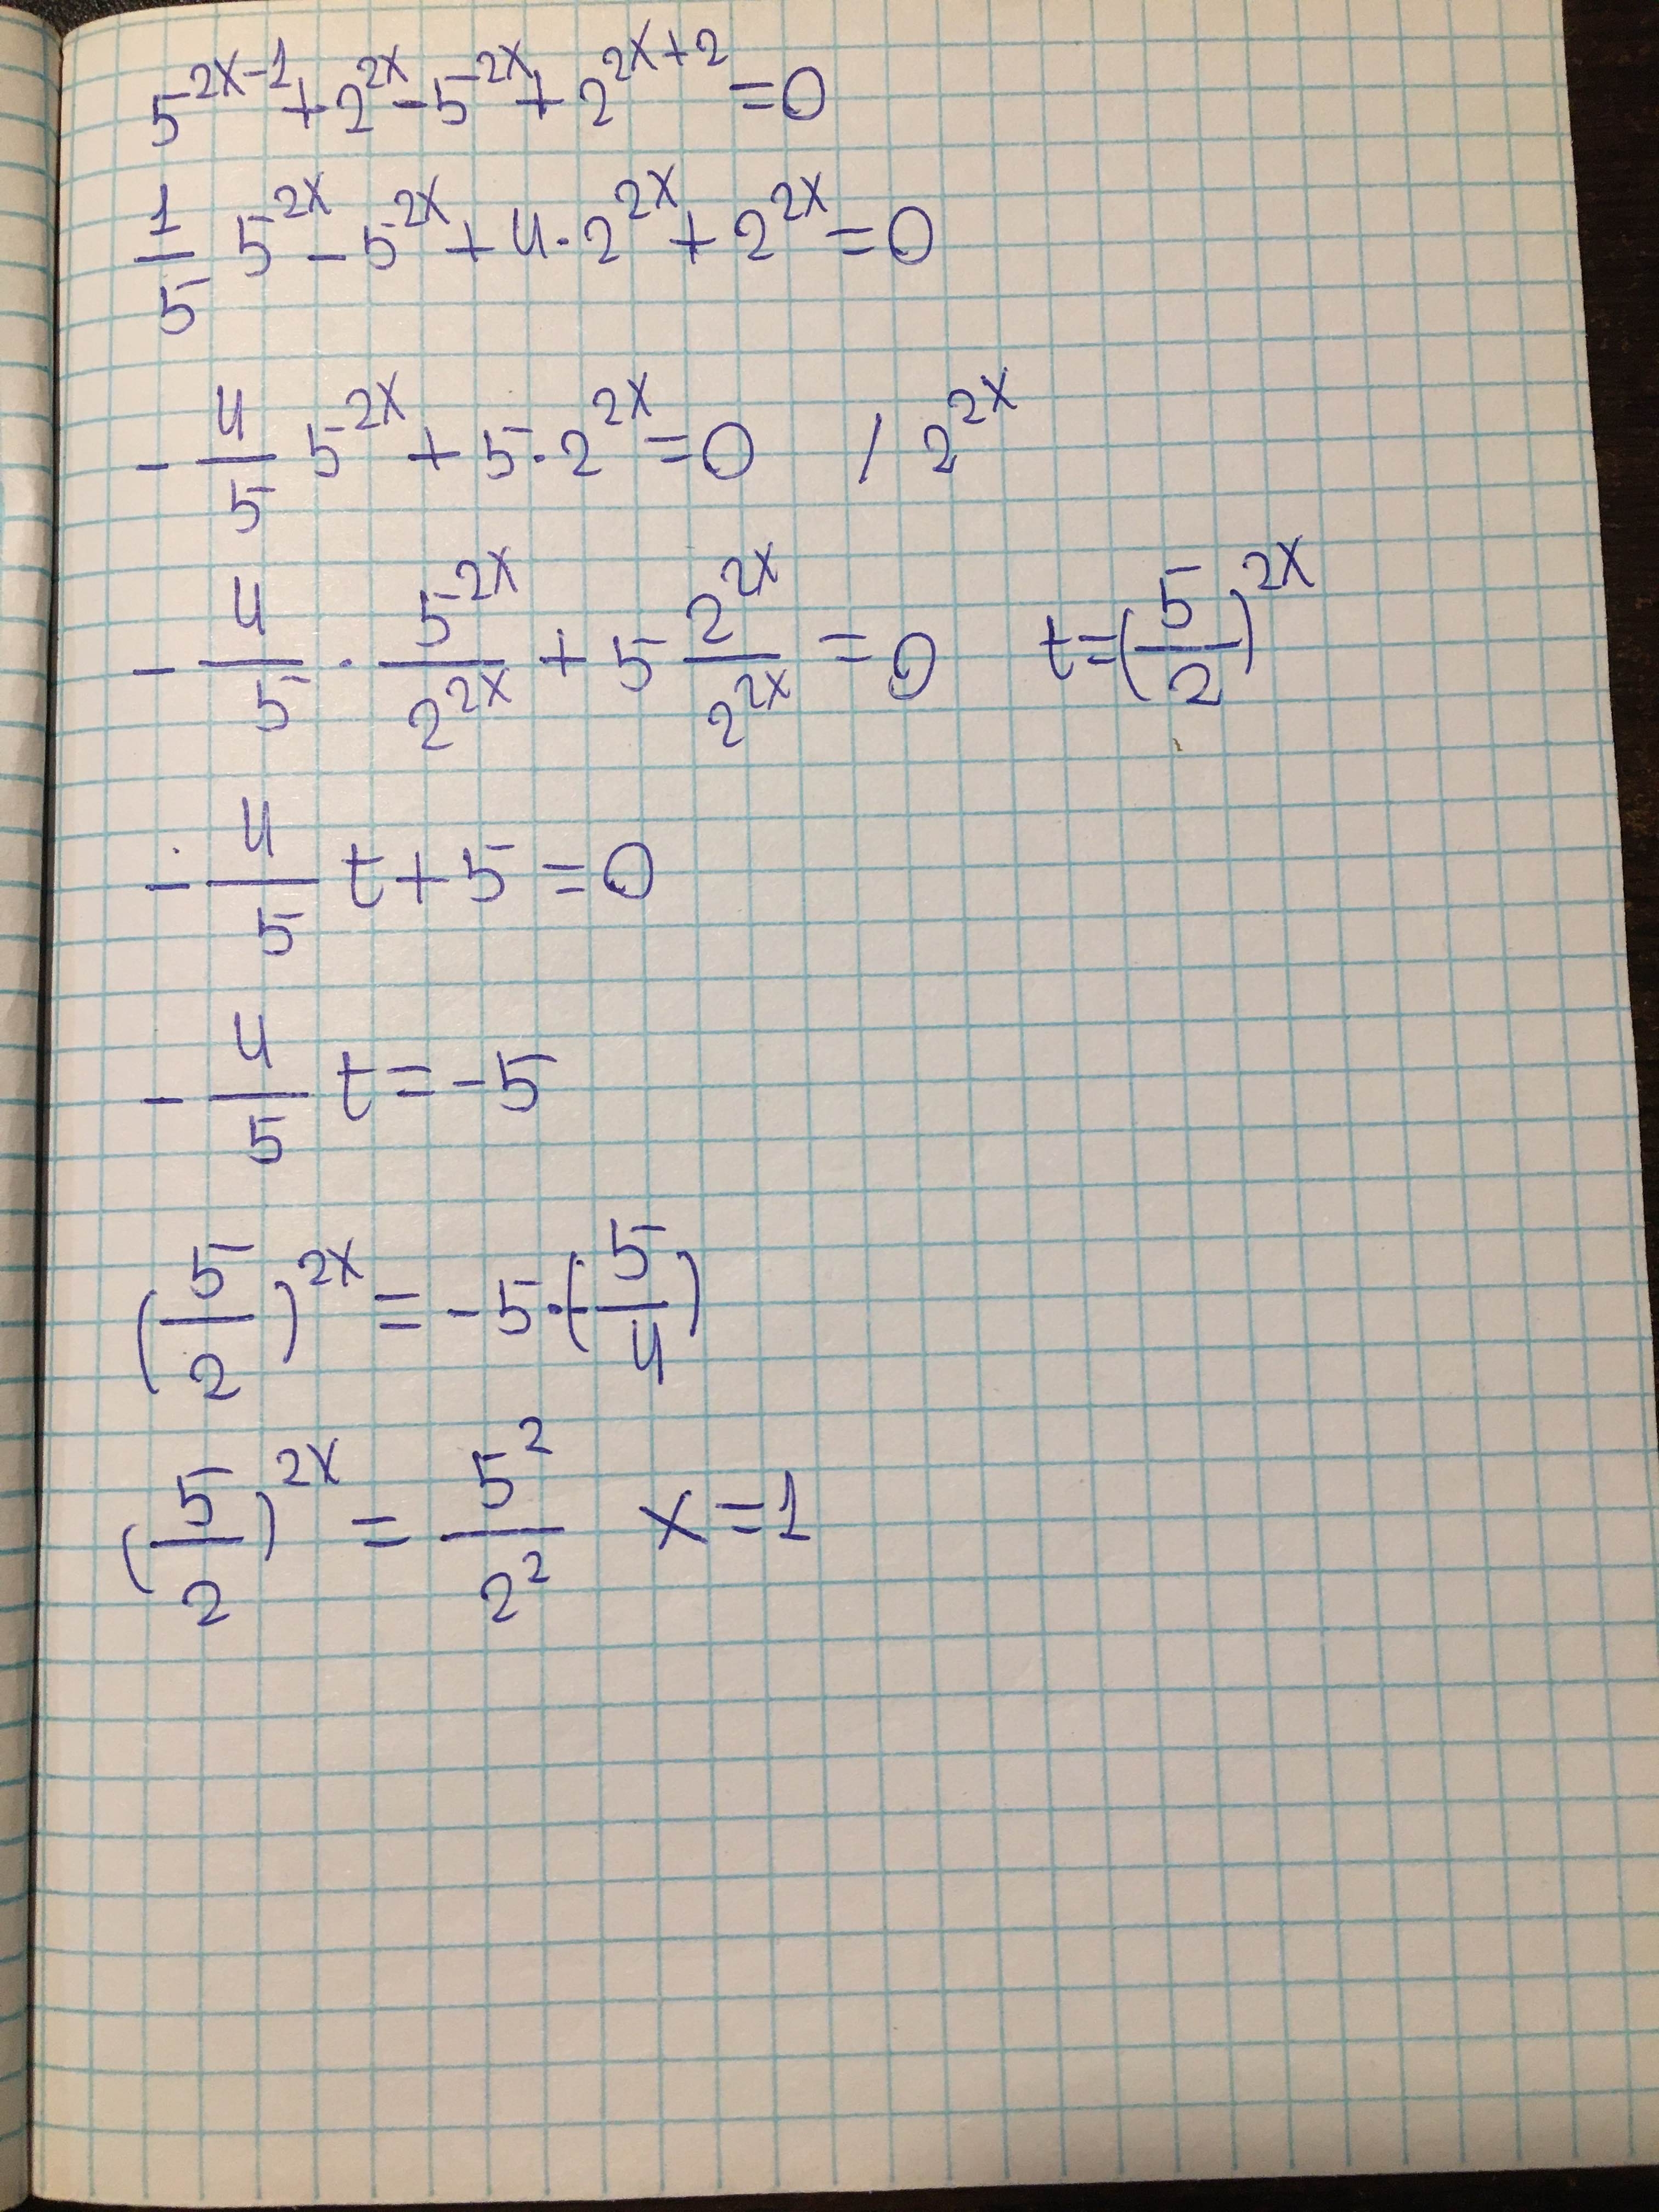 5^{2x-1}+2^{2x}-5^{2x}+2^{2x+2}=0
\frac{1}{5} 5^{2x}-5^{2x}+4·2^{2x}+2^{2x}=0
-\frac{4}{5} 5^{2x}+5·2^{2x}=0 / 2^{2x}
-\frac{4}{5}·\frac{5^{2x}}{2^{2x}}+5\frac{2^{2x}}{2^{2x}}=0 t=(\frac{5}{2})^{2x}
-\frac{4}{5} t+5=0
-\frac{4}{5} t=-5
(\frac{5}{2})^{2x}=-5·(-\frac{5}{4})
(\frac{5}{2})^{2x}=\frac{5^2}{2^2} x=1